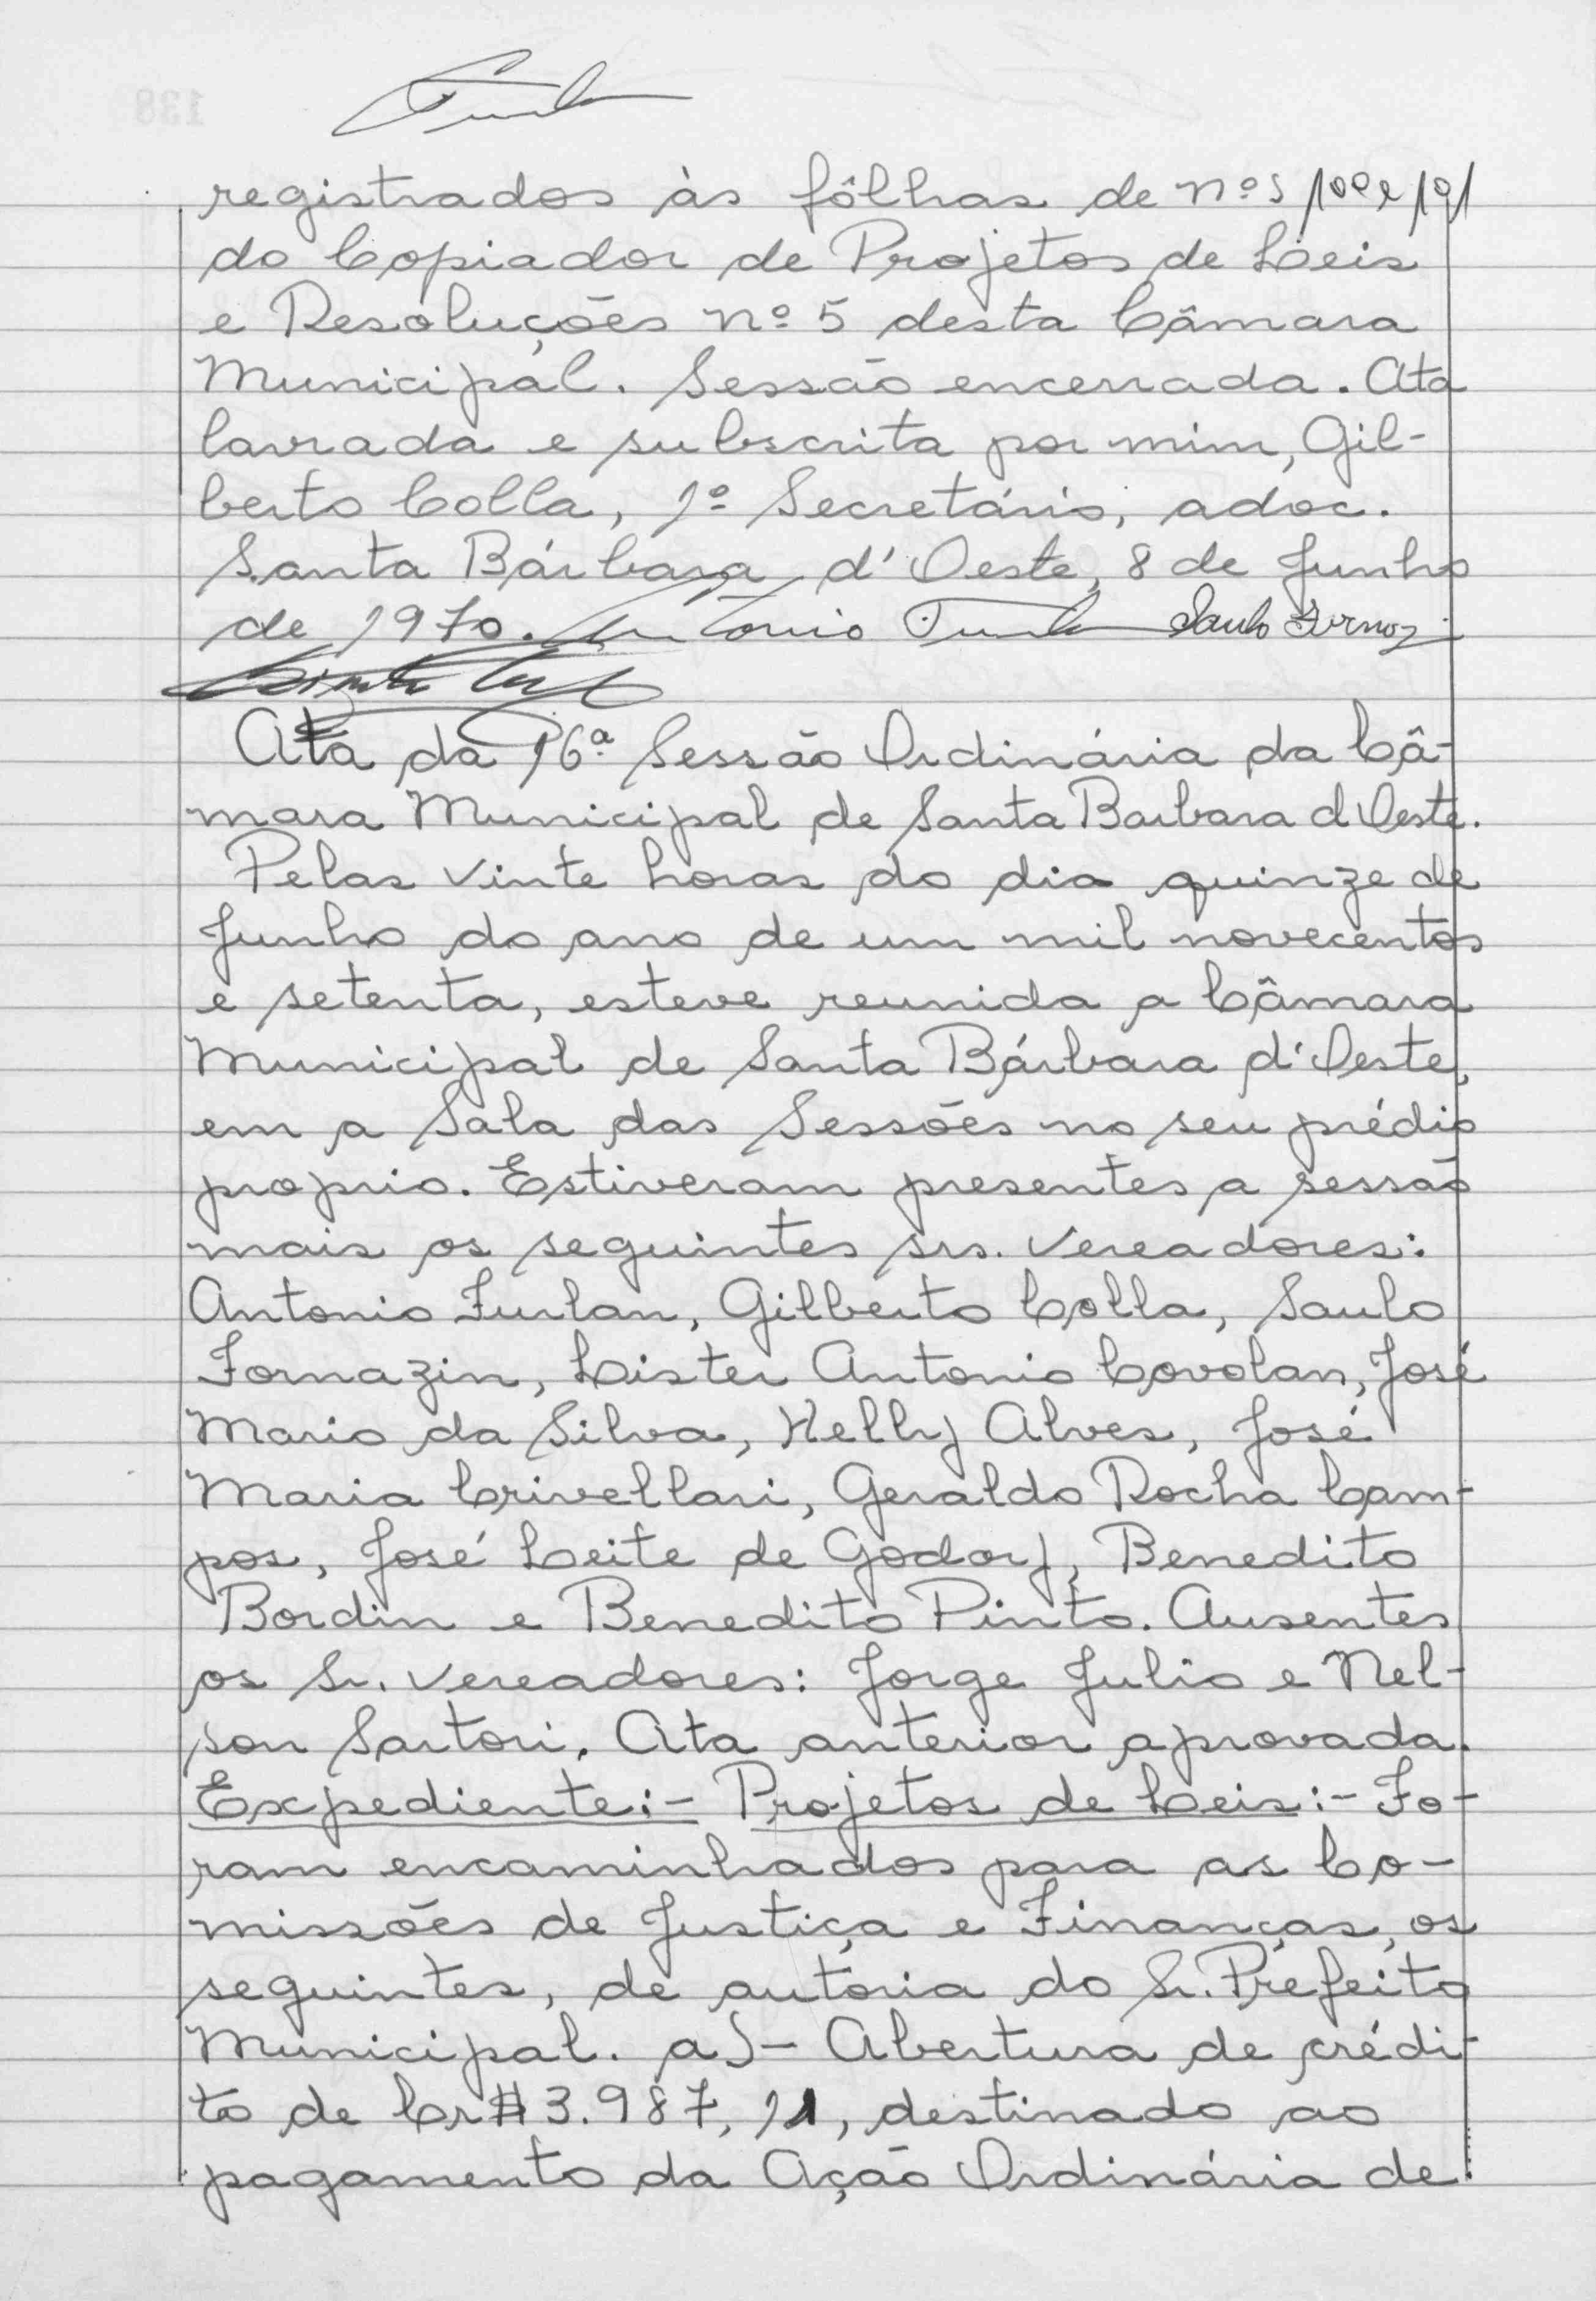 registrados às fôlhas de nºs 100 e 101
do Copiador de Projetos de Leis
e Resoluções nº 5 desta Câmara
Municipal. Sessão encerrada. Ata
lavrada e subscrita por mim, Gil-
berto Colla, 1º Secretário, adoc.
Santa Bárbara d'Oeste, 8 de Junho
de 1970. Antonio Furlan Saulo
Ata da 16ª Sessão Ordinária da Câ-
mara Municipal de Santa Barbara d Oeste.
Pelas vinte horas do dia quinze de
Junho do ano de um mil novecentos
e setenta, esteve reunida a Câmara
Municipal de Santa Bárbara d'Oeste,
em a Sala das Sessões no seu prédio
proprio. Estiveram presentes a sessão
mais os seguintes srs. Vereadores:
Antonio Furlan, Gilberto Colla, Saulo
Fornazin, Lister Antonio Covolan, José
Mario da Silva, Helly Alves, José
Maria Crivellari, Geraldo Rocha Cam-
pos, José Leite de Godoy, Benedito
Bordin e Benedito Pinto. Ausentes
os Sr. Vereadores: Jorge Julio e Nel-
son Sartori. Ata anterior aprovada.
Expediente:- Projetos de Leis:- Fo-
ram encaminhados para as Co-
missões de Justiça e Finanças, os
seguintes, de autoria do Sr. Prefeito
Municipal. a)- Abertura de crédi-
to de Cr$ 3.987,11, destinado ao
pagamento da Ação Ordinária de